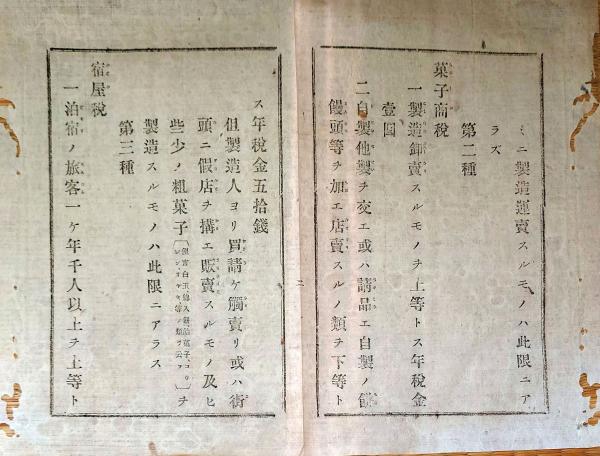 ミニ製造運賣スルモノハ此限ニア
ラズ
第二種
菓子商税
一製造卸賣スルモノヲ上等トス年税金
壹圓
二自製他製ヲ交エ或ハ請品エ自製ノ餅
饅頭等ヲ加エ店賣スルノ類ヲ下等ト
二
ス年税金五拾錢
但製造人ヨリ買請ケ觸賣リ或ハ街
頭ニ假店ヲ搆エ販賣スルモノ及ヒ
些少ノ粗菓子ヲ
製造スルモノハ此限ニアラス
第三種
宿屋税
一泊宿ノ旅客一ケ年千人以上ヲ上等ト